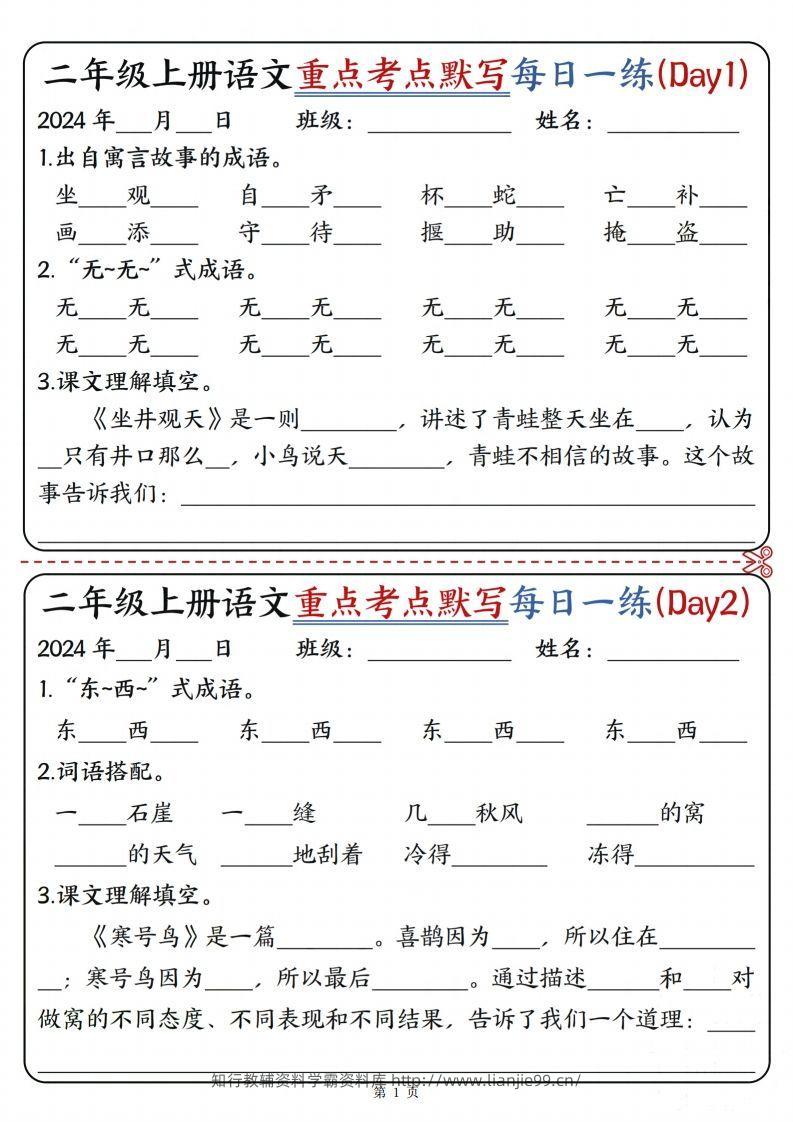 二年级上册语文重点考点默写每日一练(Day1)
2024 年___月___日 班级：____________ 姓名：___________
1.出自寓言故事的成语。
坐____观____ 自____矛____ 杯____蛇____ 亡____补____
画____添____ 守____待____ 揠____助____ 掩____盗____
2.“无~无~”式成语。
无____无____ 无____无____ 无____无____ 无____无____
无____无____ 无____无____ 无____无____ 无____无____
3.课文理解填空。
《坐井观天》是一则________，讲述了青蛙整天坐在____，认为
__只有井口那么__，小鸟说天________，青蛙不相信的故事。这个故
事告诉我们：________________________________________________
____________________________________________________________
二年级上册语文重点考点默写每日一练(Day2)
2024 年___月___日 班级：____________ 姓名：___________
1.“东~西~”式成语。
东____西____ 东____西____ 东____西____ 东____西____
2.词语搭配。
一____石崖 一____缝 几____秋风 ______的窝
______的天气 ______地刮着 冷得________ 冻得__________
3.课文理解填空。
《寒号鸟》是一篇________。喜鹊因为____，所以住在________
__；寒号鸟因为____，所以最后________。通过描述______和____对
做窝的不同态度、不同表现和不同结果，告诉了我们一个道理：____
____________________________________________________________
知行教辅资料学霸资料库 http://www.lianjie99.cn/
第 1 页